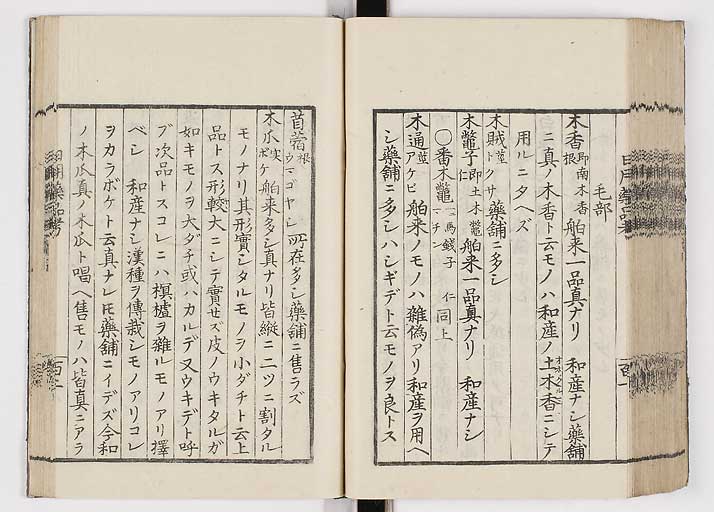 毛部
木香 根 即南木香 舶来一品真ナリ 和産ナシ藥舗
ニ真ノ木香ト云モノハ和産ノ土木香ニシテ
用ルニタヘズ
木賊 莖 トクサ 藥舗ニ多シ
木鼈子 仁 即土木鼈 舶来一品真ナリ 和産ナシ
〇番木鼈 一馬錢子 マチン 仁 同上
木通 莖 アケビ 舶来ノモノハ雜偽アリ和産ヲ用ヘ
シ藥舗ニ多シハシギデト云モノヲ良トス
苜蓿 根 ウマゴヤシ 所在多シ藥舗ニ售ラズ
木瓜 実 ボケ 舶来多シ真ナリ皆縦ニ二ツニ割タル
モノナリ其形實シタルモノヲ小ダチト云上
品トス形較大ニシテ實せズ皮ノウキタルガ
如キモノヲ大ダチ或ハカルデ又ウキデト呼
ブ次品トスコレニハ榠樝ヲ雜ルモノアリ擇
ベシ 和産ナシ漢種ヲ傳栽シモノアリコレ
ヲカラボケト云真ナレ𪜈藥舗ニイデズ今和
ノ木瓜真ノ木瓜ト唱ヘ售モノハ皆真ニアラ